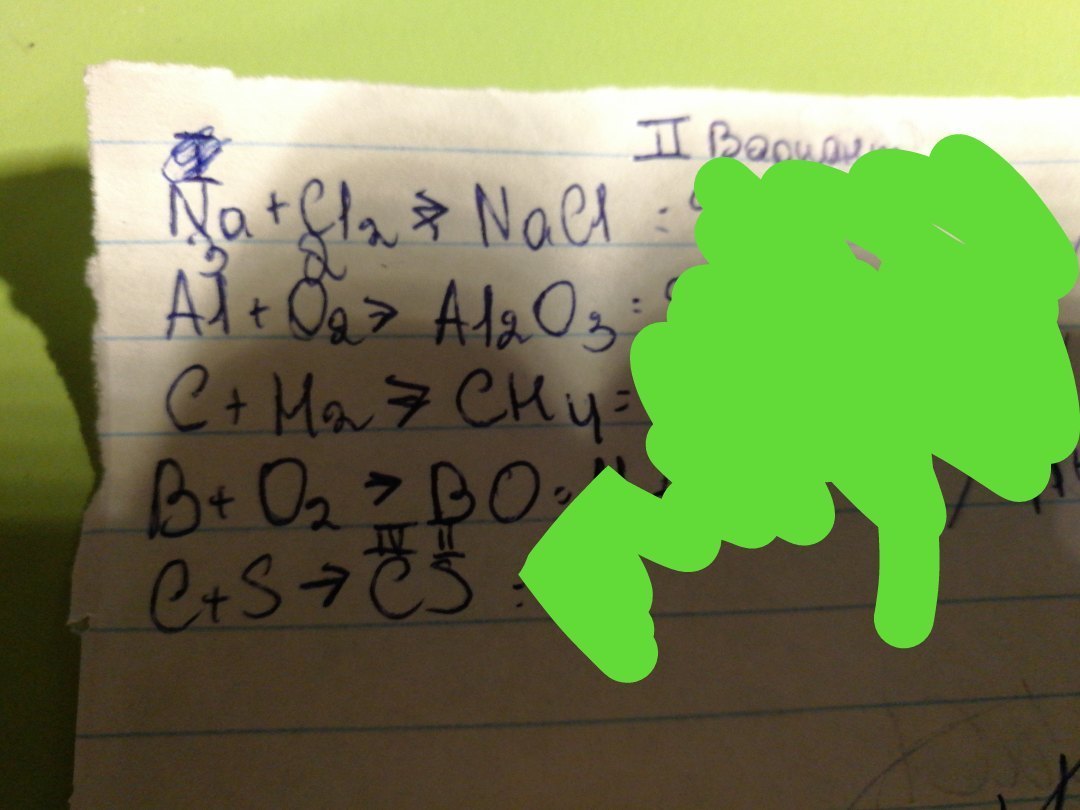 II Вариант
Na + Cl2 → NaCl :
3 2
Al + O2 → Al2O3 :
C + H2 → CH4 =
B + O2 → BO =
IV II
C + S → CS :